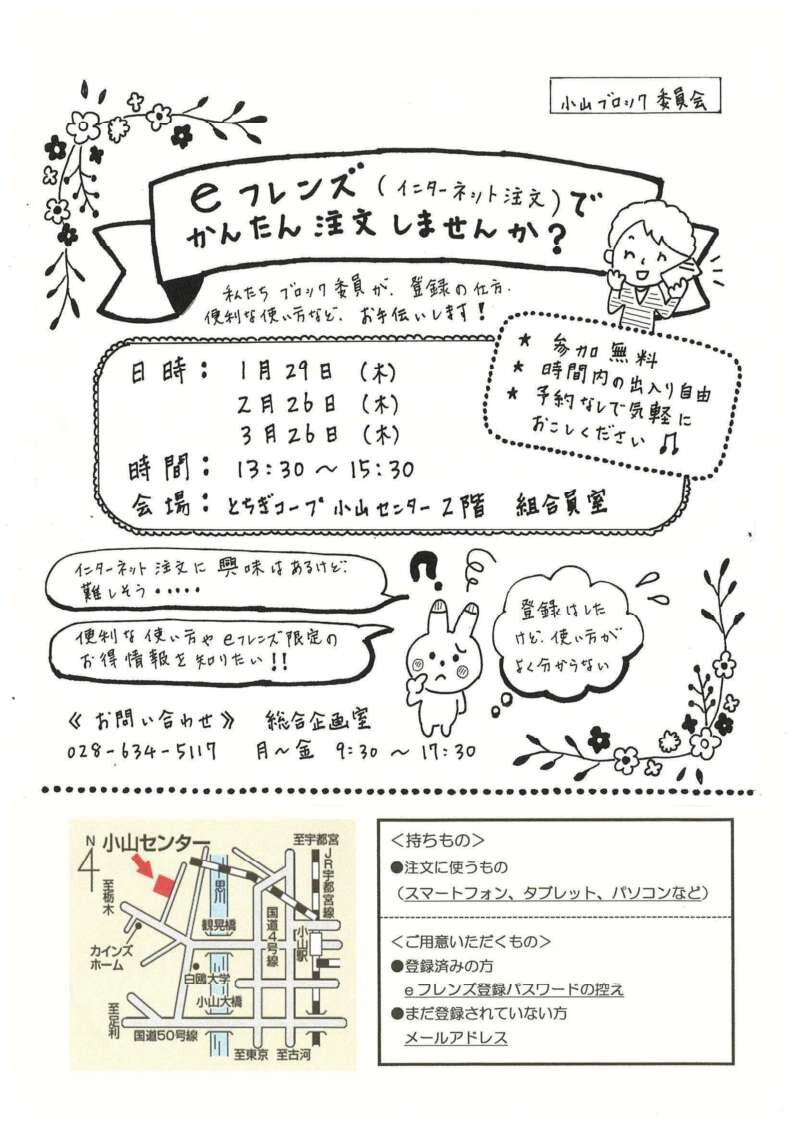 小山ブロック委員会
eフレンズ(インターネット注文)で
かんたん注文しませんか?
私たちブロック委員が、登録の仕方、
便利な使い方など、お手伝いします!
★ 参加無料
★ 時間内の出入り自由
★ 予約なしで気軽に
おこしください♫
日時: 1月29日(木)
2月26日(木)
3月26日(木)
時間: 13:30〜15:30
会場: とちぎコープ小山センター2階 組合員室
インターネット注文に興味はあるけど、
難しそう・・・・・
便利な使い方やeフレンズ限定の
お得情報を知りたい!!
?
登録はした
けど、使い方が
よく分からない
《お問い合わせ》 総合企画室
028-634-5117 月〜金 9:30〜17:30
N
4
小山センター
至宇都宮
至栃木
思川
JR宇都宮線
観晃橋
国道4号線
小山駅
カインズ
ホーム
白鴎大学
小山大橋
至足利
国道50号線
至東京
至古河
<持ちもの>
●注文に使うもの
(スマートフォン、タブレット、パソコンなど)
<ご用意いただくもの>
●登録済みの方
eフレンズ登録パスワードの控え
●まだ登録されていない方
メールアドレス